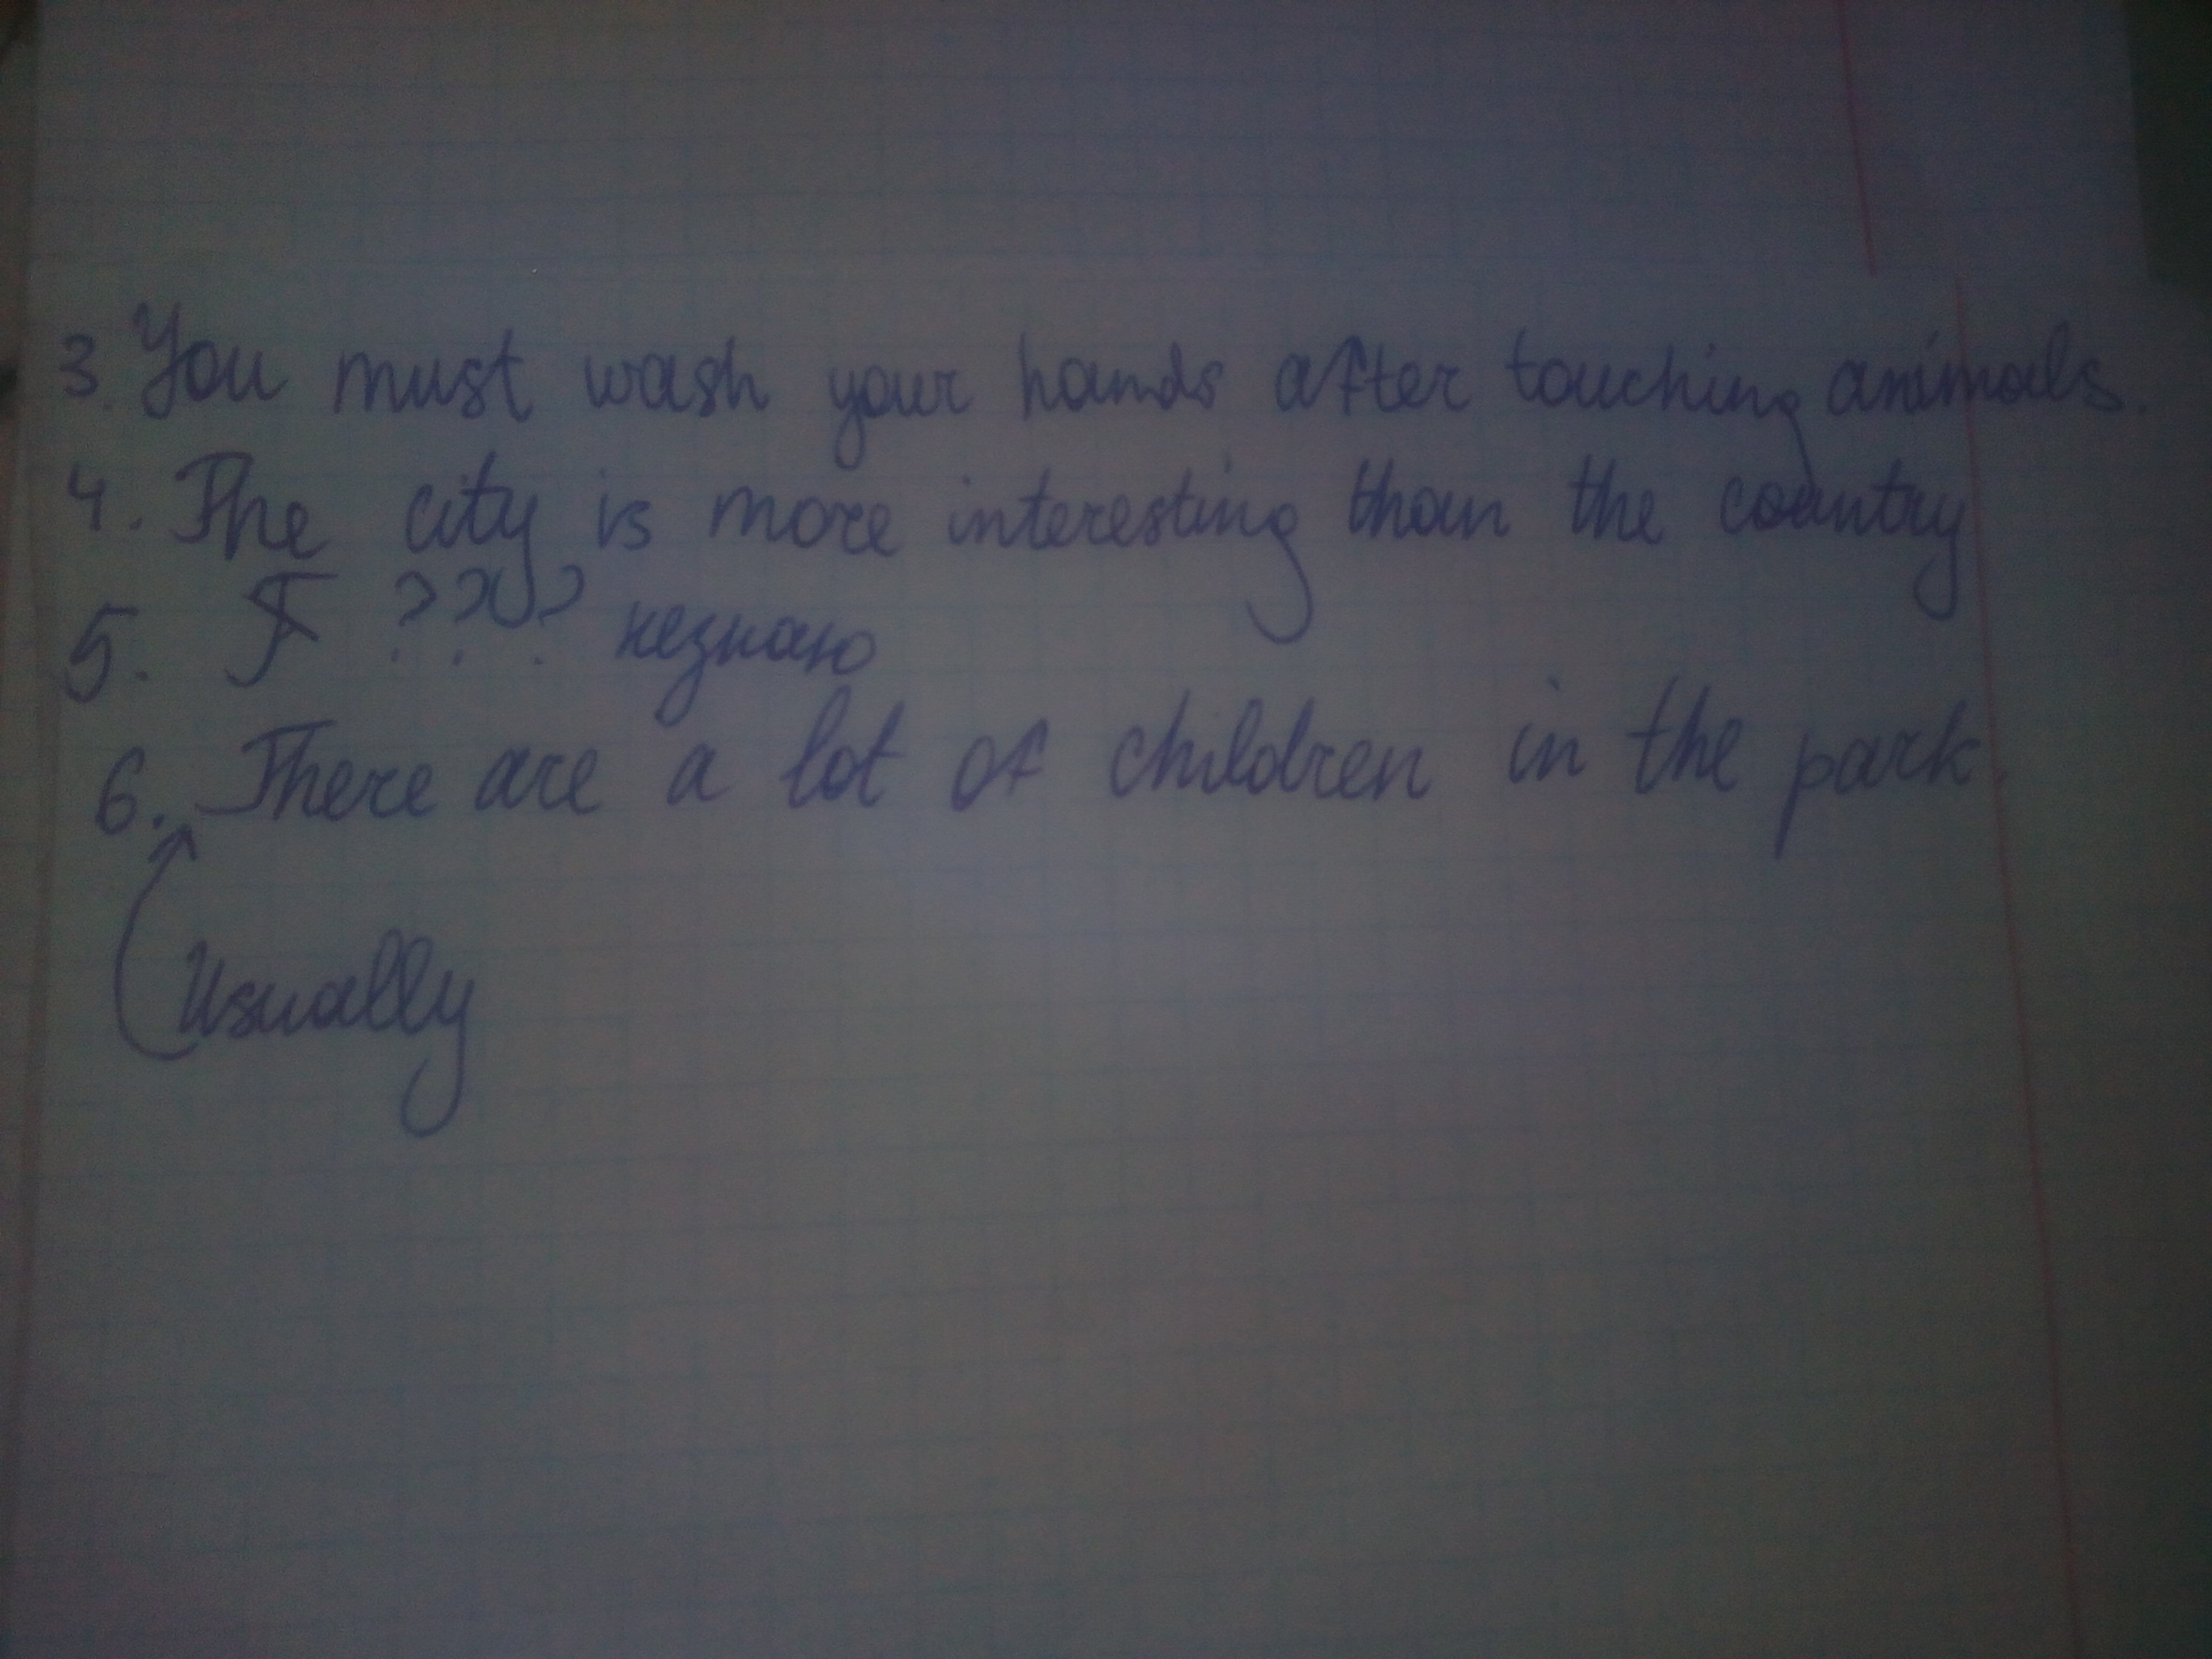 3. You must wash your hands after touching animals.
4. The city is more interesting than the country
5. ? ? ? ? незнаю
6. There are a lot of children in the park.
Usually